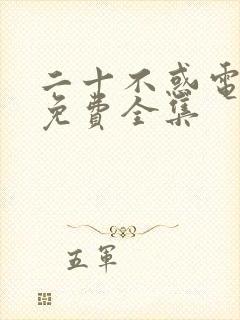 二十不惑電
免費全集
五軍